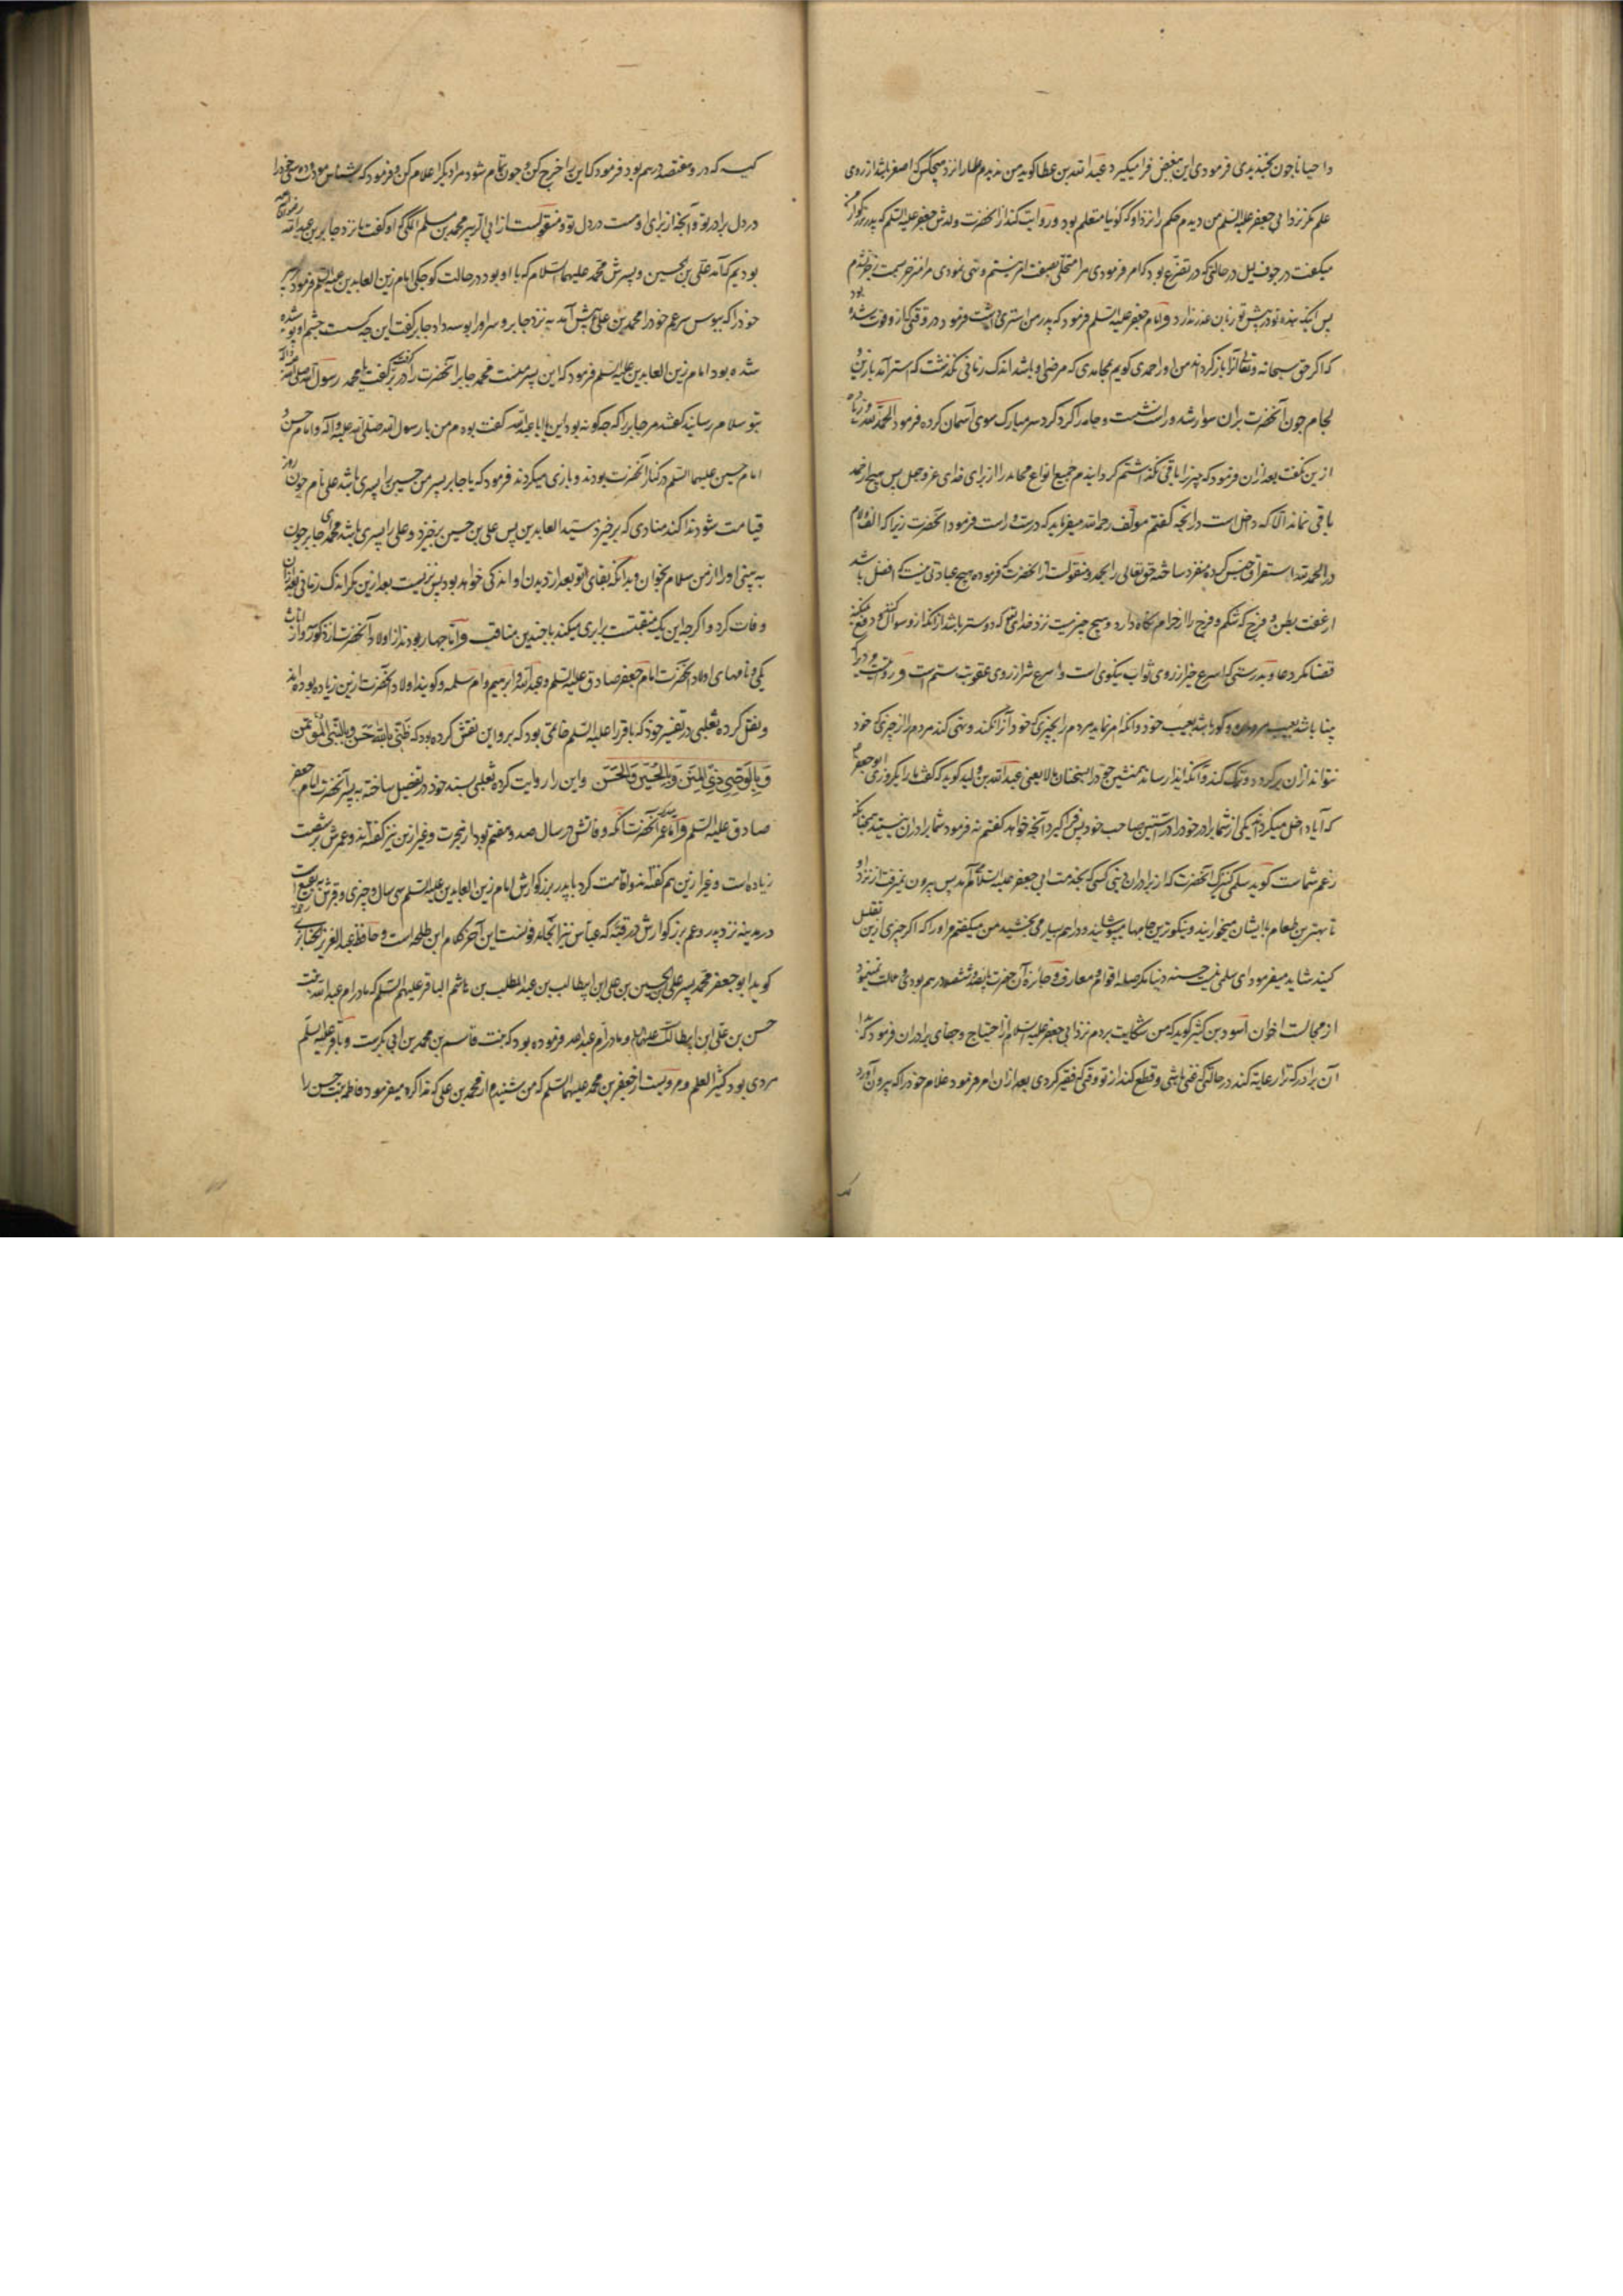 و احیانا چون بخندیدی فرمودی این بغض فرا میگیرد عبد الله بن عطا کوید من ندیدم علما را نزد هیچکس که اصغر باشد از روی
علم مکر نزد ابی جعفر علیه السلم من دیدم حکم را نزد او که کوئیا متعلم بود و روایت کند از انحضرت ولدش جعفر علیه السلم که پدر بزرکوارم
میکفت در جوف لیل در حالتی که در تضرع بود که امر فرمودی مرا نبستم و نهی نمودی مرا منزجر
پس اینک بنده تو در پیش تو زبان عذر ندارد و امام جعفر علیه السلم فرمود که پدر من استری داشت فرمود در وقتی که از و فوت شده بود
که اکر حق سبحانه و تعالی باز کرداند من او را حمدی کویم بمحامدی که مرضی او باشد اندک زمانی نکذشت که استر آمد با زین و
لجام چون آنحضرت بران سوار شد و راست نشست و جامه را کرد کرد سر مبارک سوی آسمان کرده فرمود الحمد لله و زیاده
ازین نکفت بعد ازان فرمود که چیزی را باقی نکذاشتم کردانیدم جمیع انواع محامد را از برای خدای عز و جل پس هیچ از حمد
باقی نماند الا که داخل است در انچه کفتم مولف رحمه الله میفرماید که درست و راست فرمود انحضرت زیرا که الف و لام
در الحمد لله استغراق جنس کرده منفرد ساخته حق تعالی را بحمد و منقولست از انحضرت که فرموده هیچ عبادتی نیست که افضل باشد
از عفت بطن و فرج که شکم و فرج را از حرام نکاه دارد و هیچ چیز نیست نزد خدایتعالی که دوستر باشد از انکه از و سوال کنند و دفع نمیکند
قضا مکر دعا و بدرستی که اسرع خیر از روی ثواب نیکوی است و اسرع شر از روی عقوبت ستم است و
بینا باشد بعیب مردم و کور باشد بعیب خود و انکه امر نماید مردم را بچیزی که خود آنرا نکند و نهی کند مردم را از چیزی که خود
نتواند ازان بر کردد و ترک کند و آنکه ایذا رساند همنشین خود را بسخنان لا یعنی عبد الله بن ولید کوید که کفت ما را یکروزی ابو جعفر
که آیا داخل میکرداند یکی از شما برادر خود را در آستین صاحب خود پس فرا کیرد آنچه خواهد کفتم نه فرمود شما برادران نیستید همچنانکه
زعم شماست کوید سلمی کنیزک آنحضرت که از برادران دینی کسی که بخدمت ابی جعفر علیه السلام آمدی پس بیرون نمیرفت از نزد او
تا بهترین طعام با ایشان میخورانید و نیکوترین جامها میپوشانید و دراهم بسیار می بخشید من میکفتم مر او را که اکر چیزی ازین تقلیل
کنید شاید میفرمود ای سلمی نیست حسنه دنیا مکر صله اقوام و معارف و جائزه آن حضرت پانصد و ششصد درهم بودی و ملالت نمینمود
از مجالست اخوان اسود بن کثیر کوید که من شکایت بردم نزد ابی جعفر علیه السلام از احتیاج و جفای برادران فرمود که بد
آن برادر که ترا رعایه کند در حالتی که غنی باشی و قطع کند از تو وقتی که فقیر کردی بعد ازان امر فرمود غلام خود را که بیرون آورد
کیسه که در و هفتصد درهم بود فرمود که این را خرج کن و چون تمام شود مرا دیکر اعلام کن و فرمود که بشناس مودت دوستی خود را
در دل برادر تو و آنچه از برای اوست در دل تو و منقولست از ابی الزبیر محمد بن مسلم المکی که او کفت ما نزد جابر بن عبد الله رضی الله عنه
بودیم که آمد علی بن الحسین و پسرش محمد علیهما السلام که با او بود در حالت کوچکی امام زین العابدین علیه السلم فرمود پسر
خود را که ببوس سر عم خود را محمد بن علی پیش آمد به نزد جابر و سر او را بوسه داد جابر کفت این چه کسست چشم او پوشیده
شده بود امام زین العابدین علیه السلم فرمود که این پسر منست محمد جابر آنحضرت را در بر کرفت کفت یا محمد رسول الله صلی الله علیه و آله
بتو سلام رسانید کفتند مر جابر را که چکونه بود این یا ابا عبد الله کفت بودم من با رسول الله صلی الله علیه و آله و امام حسن و
امام حسین علیهما السلم در کنار آنحضرت بودند و بازی میکردند فرمود که یا جابر پسر من حسین را پسری باشد علی نام چون روز
قیامت شود ندا کند منادی که برخیزد سید العابدین پس علی بن حسین برخیزد و علی را پسری باشد محمد ای جابر چون
به بینی او را از من سلام بخوان و بدانکه بقای تو بعد از دیدن او اندکی خواهد بود پس نزیست بعد ازین مکر اندک زمانی بعد ازان
وفات کرد و اکر چه این یک منقبتست برابری میکند با چندین مناقب و اما چهار بودند از اولاد آنحضرت از ذکور و از اناث
یکی و نامهای اولاد انحضرت امام جعفر صادق علیه السلم و عبد الله و ابرهیم و ام سلمه و کویند اولاد انحضرت ازین زیاده بوده اند
و نقل کرده ثعلبی در تفسیر خود که باقر را علیه السلم خاتمی بود که برو این نقش کرده بود که ظنی بالله حسن و بالنبی المؤتمن
و بالوصی ذی المنن و بالحسین و الحسن و این را روایت کرده ثعلبی بسند خود در تفصیل ساخته به پسر آنحضرت امام جعفر
صادق علیه السلم و اما عمر آنحضرت آنکه وفاتش در سال صد و هفتم بود از هجرت و غیر ازین نیز کفته اند و عمرش بر شصت
زیاده است و غیر ازین هم کفته اند و اقامت کرد با پدر بزرکوارش امام زین العابدین علیه السلم سی سال و چیزی و قبرش به بقیع است
در مدینه نزد پدر و عم بزرکوارش در قبه که عباس نیز آنجا مدفونست این آخر کلام ابن طلحه است و حافظ عبد العزیز الجنابذی
کوید ابو جعفر محمد پسر علی بن الحسین بن علی ابن ابیطالب بن عبد المطلب بن هاشم الباقر علیهم السلم که مادر ام عبد الله بنت
حسن بن علی ابن ابیطالب علیهما السلام و مادر ام عبد الله فرموده بود که بنت قاسم بن محمد بن ابی بکرست و باقر علیه السلم
مردی بود کثیر العلم و مرویست از جعفر بن محمد علیهما السلم که من شنیدم از محمد بن علی که مذاکره میفرمود فاطمه بنت حسین را